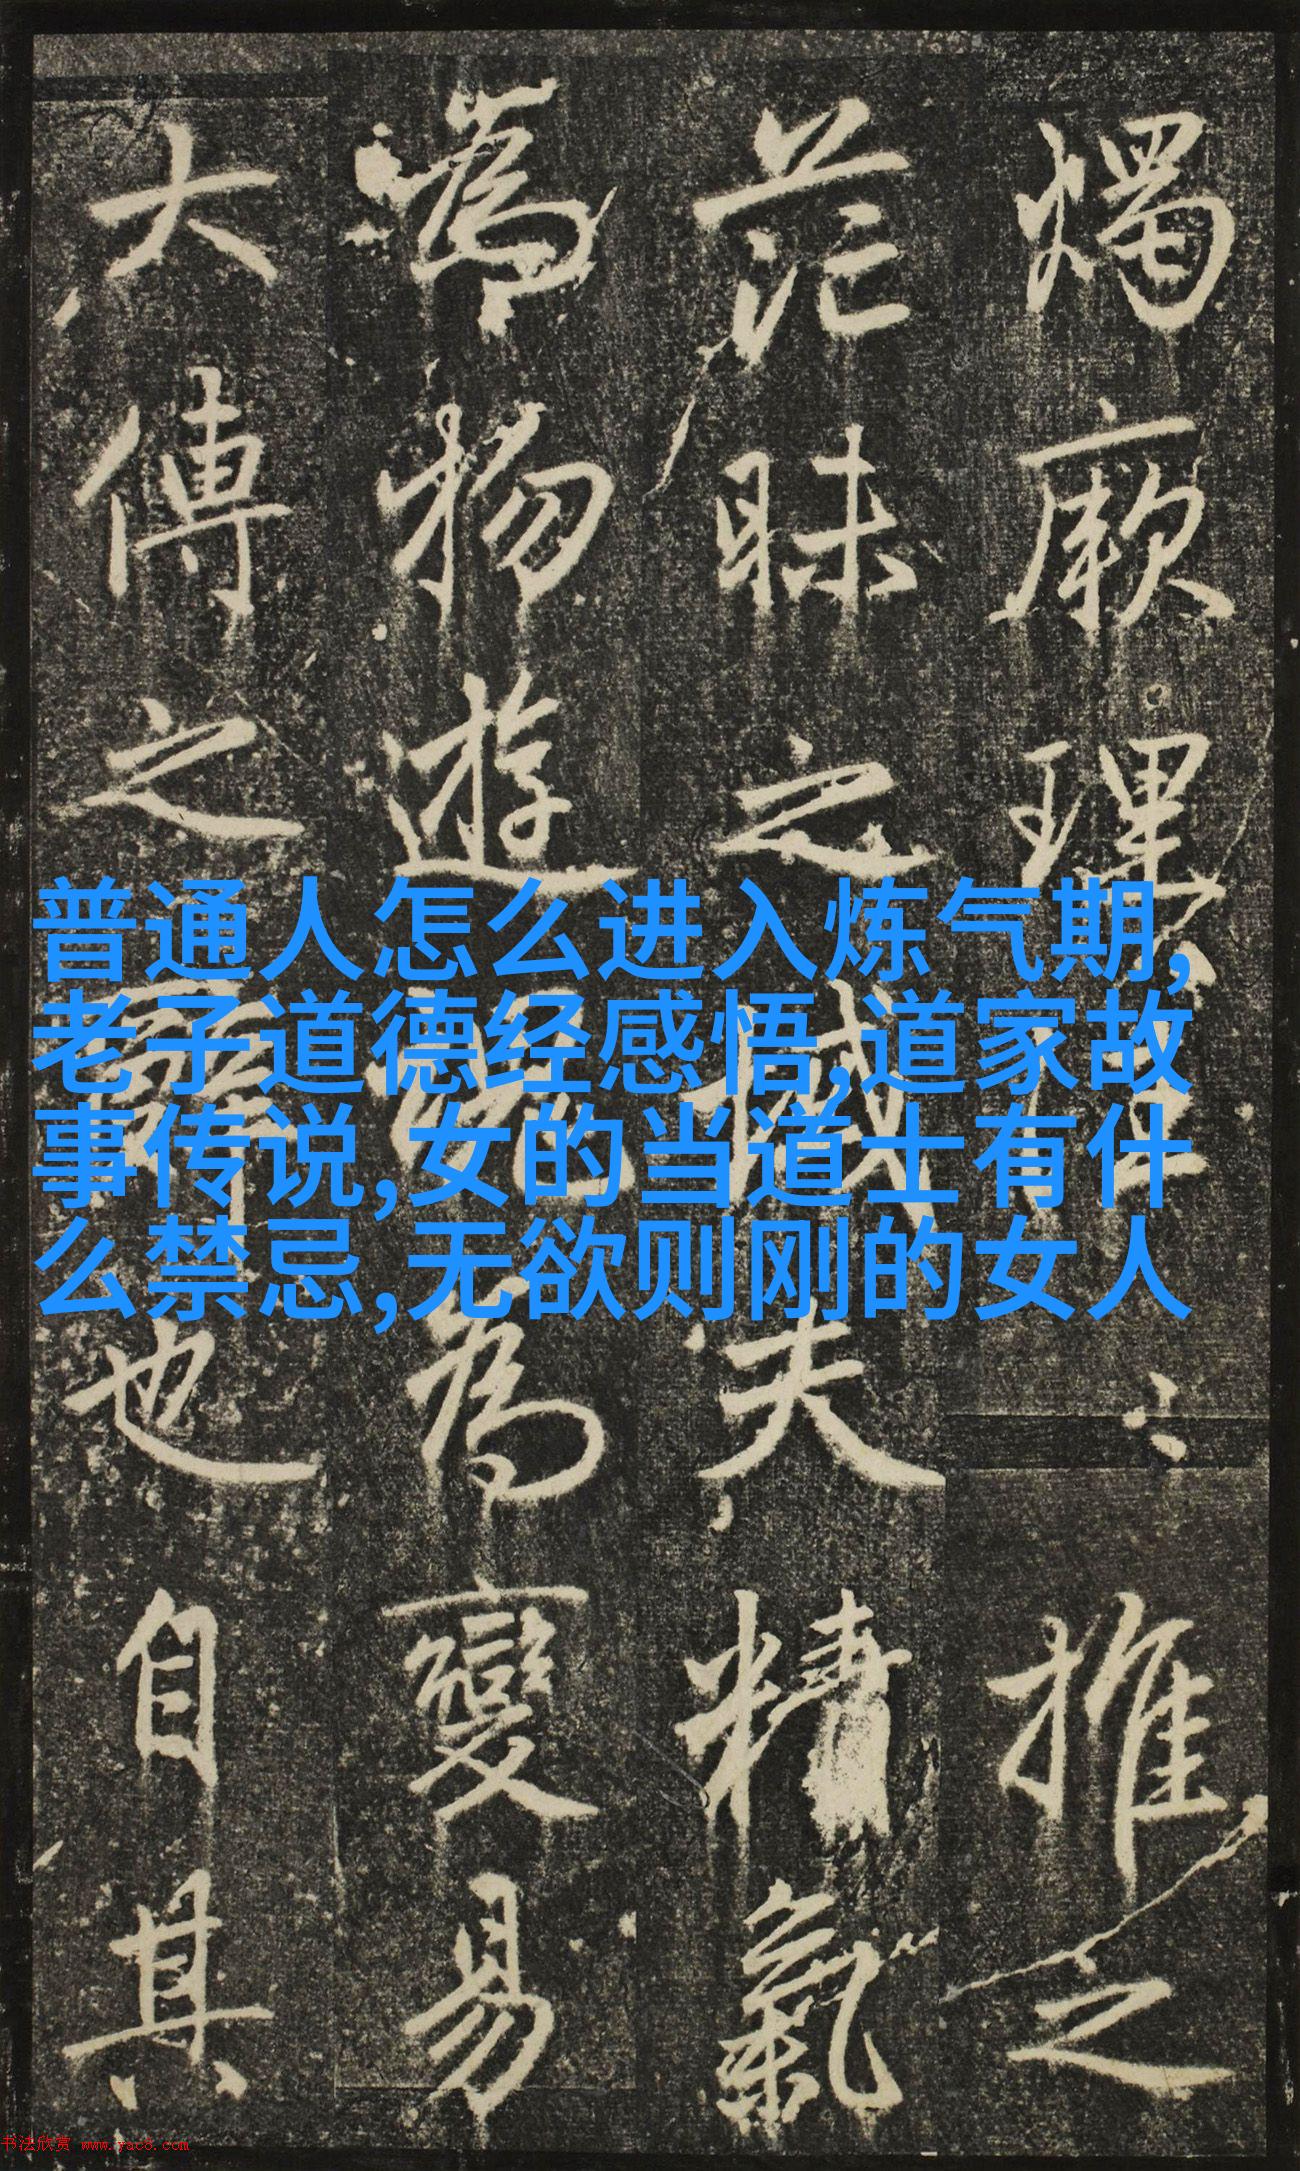 燭厥理推之
茫昧之域夫精氣
為物遊魂為變易
大傳之辭也自其
普通人怎么进入炼气期,
老子道德经感悟,道家故
事传说,女的当道士有什
么禁忌,无欲则刚的女人
书法欣赏 www.yac8.com